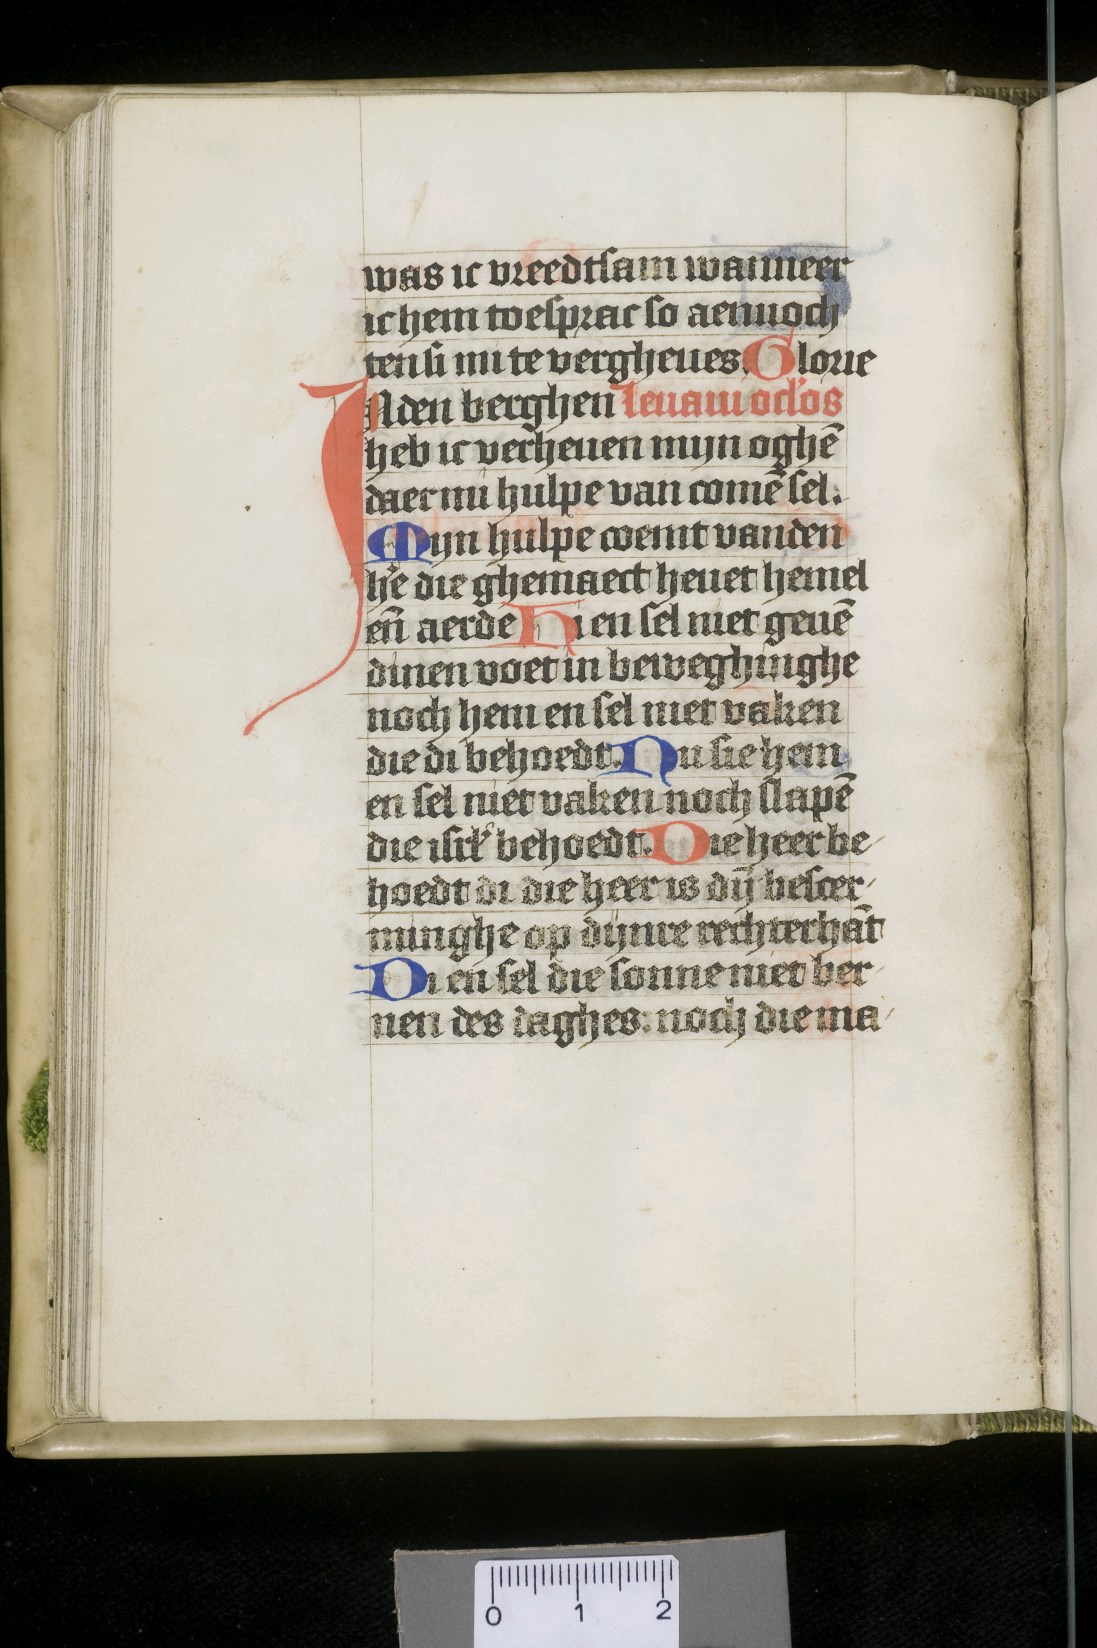 was ic vreedtsam wanneer
ic hem toesprac so aenuoch
ten si mi te vergheues. Glorie
INden berghen Leuaui oc̓los
heb ic verheuen mijn oghē
daer mi hulpe van comē sel.
Mijn hulpe coemt vanden
hr̄e die ghemaect heuet hemel
eñ aerde Hi en sel niet geuē
dinen voet in beweghinghe
noch hem en sel niet vaken
die di behoedt. Nu sie hem
en sel niet vaken noch slapē
die isrl̓ behoedt. Die heer be
hoedt di die heer is dijn bescer
minghe op dijnre rechterhāt
Di en sel die sonne niet ber
nen des daghes: noch die ma
0 1 2